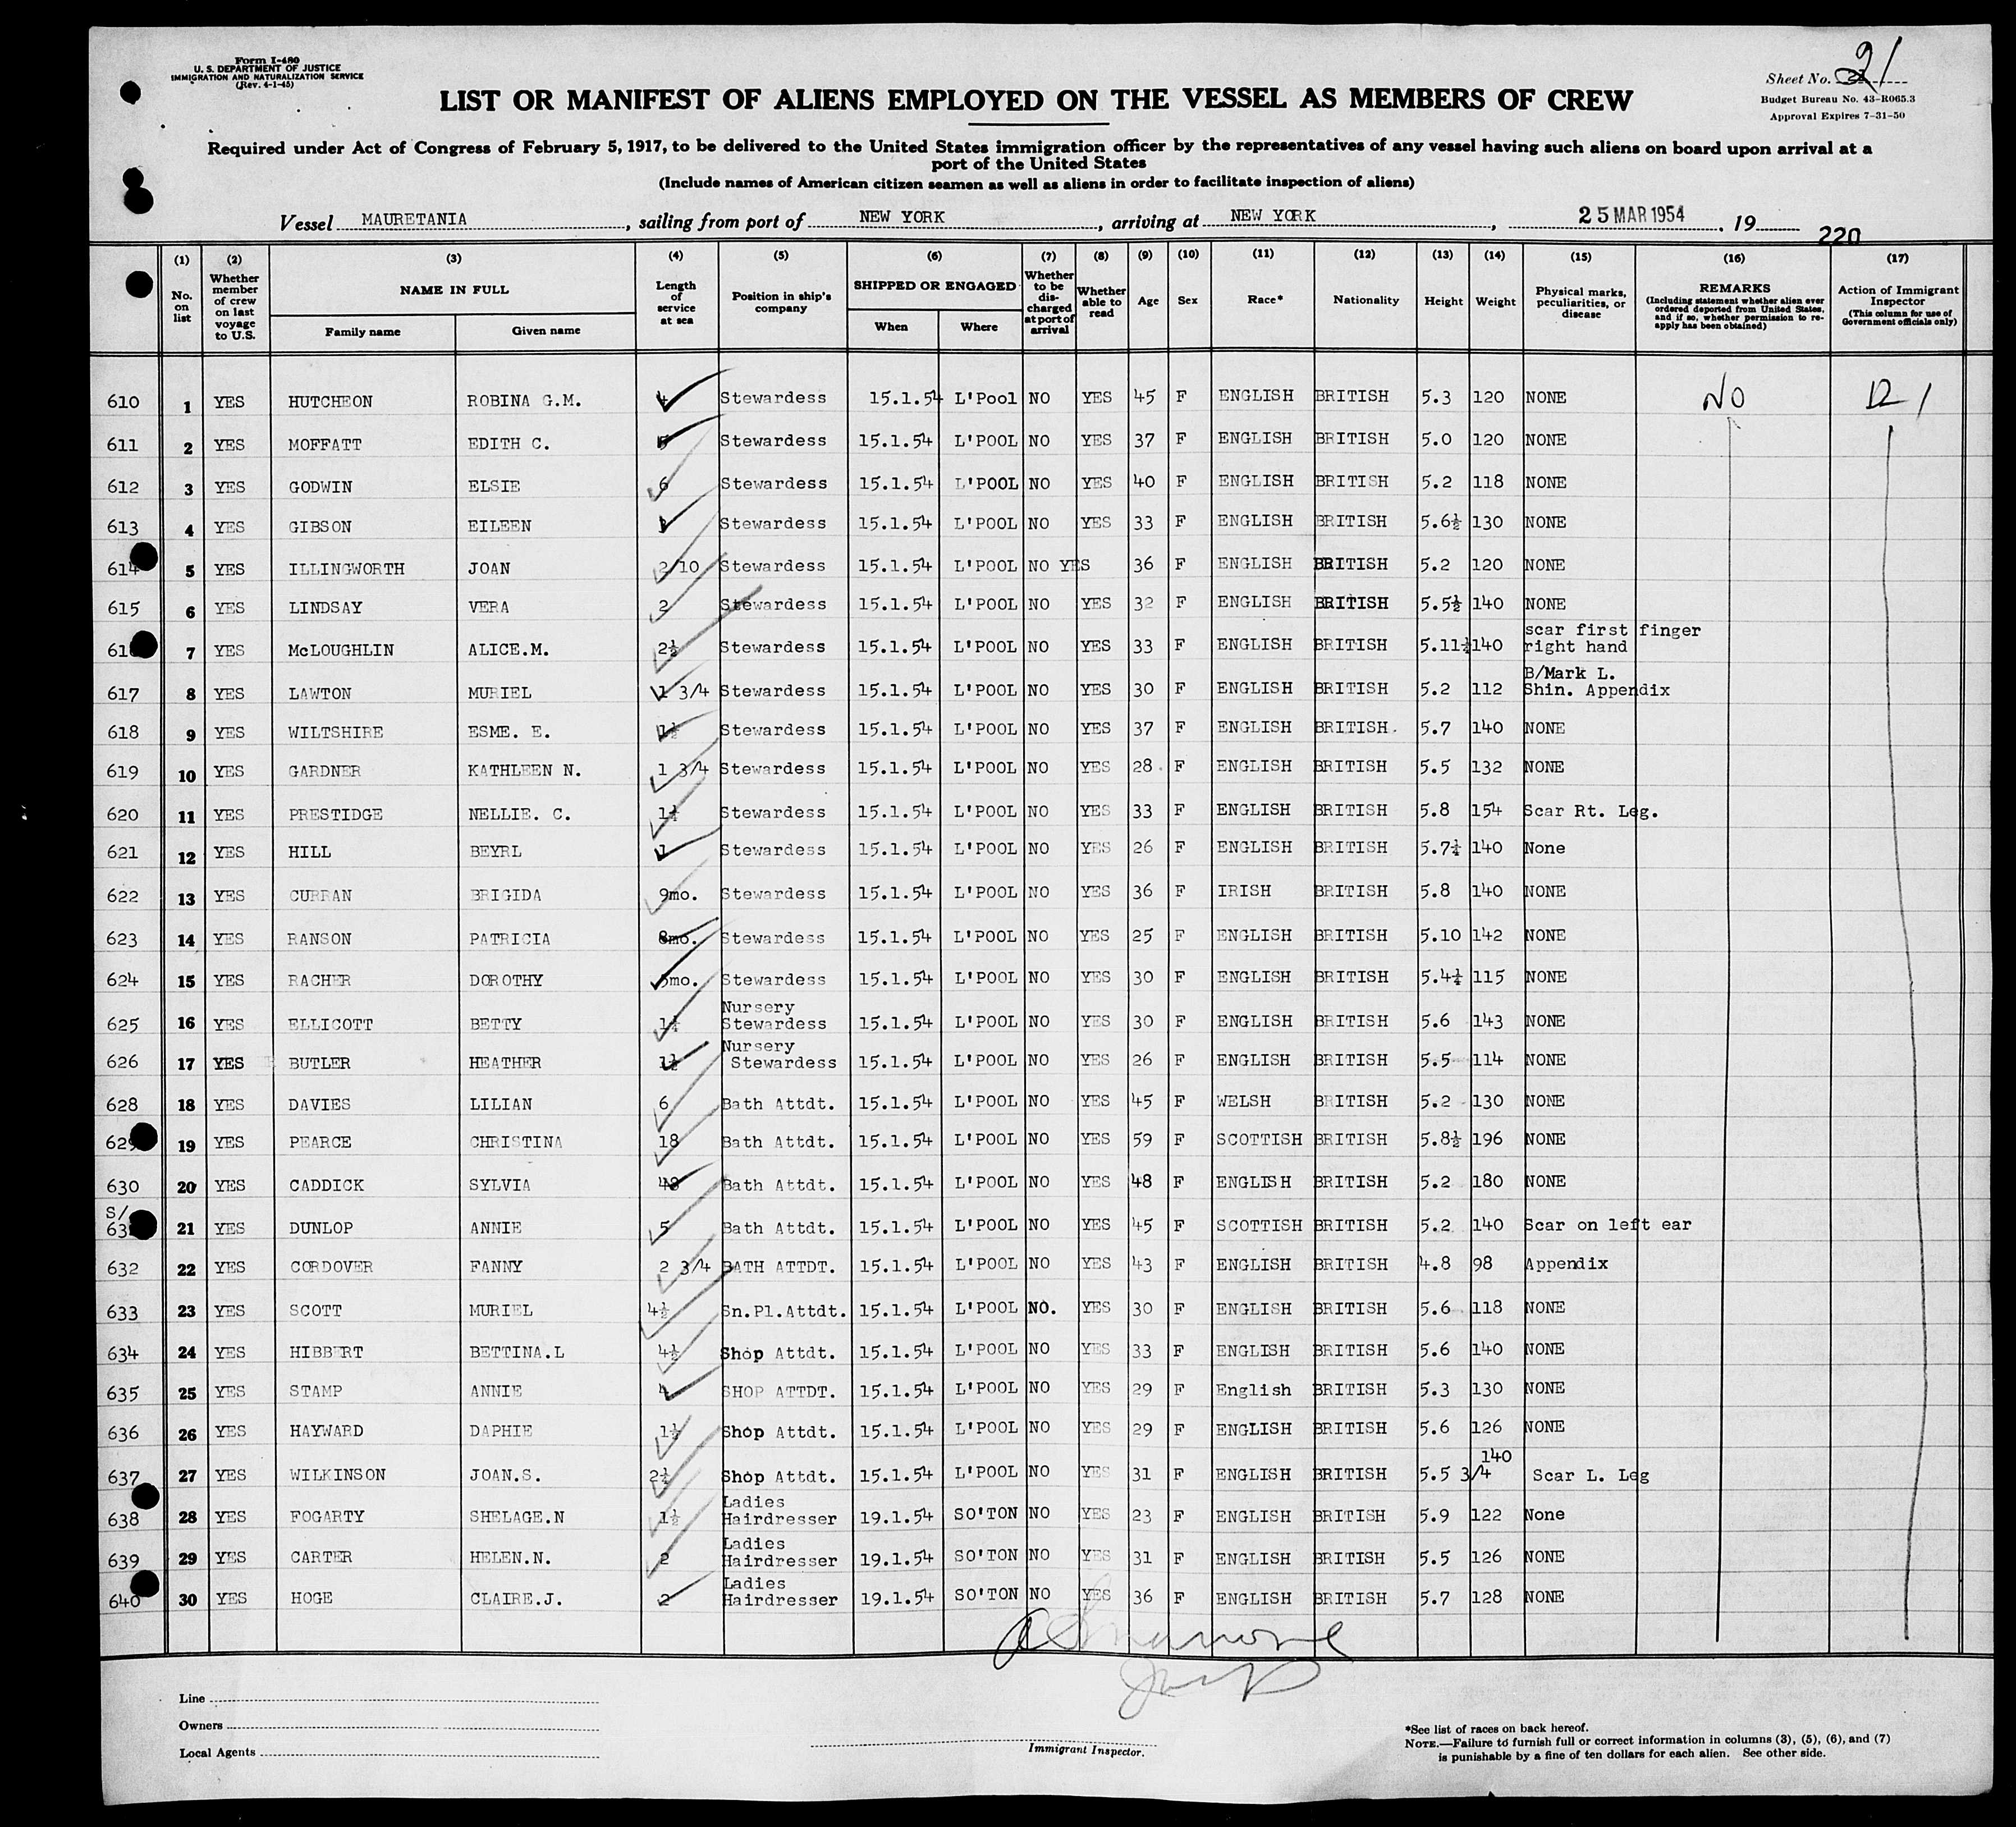 Form I-480
U. S. DEPARTMENT OF JUSTICE
IMMIGRATION AND NATURALIZATION SERVICE
(Rev. 4-1-45)
Sheet No. 21
Budget Bureau No. 43-R065.3
Approval Expires 7-31-50
LIST OR MANIFEST OF ALIENS EMPLOYED ON THE VESSEL AS MEMBERS OF CREW
Required under Act of Congress of February 5, 1917, to be delivered to the United States immigration officer by the representatives of any vessel having such aliens on board upon arrival at a
port of the United States
(Include names of American citizen seamen as well as aliens in order to facilitate inspection of aliens)
Vessel MAURETANIA, sailing from port of NEW YORK, arriving at NEW YORK, 25 MAR 1954, 19
220
(1) (2) (3) (4) (5) (6) (7) (8) (9) (10) (11) (12) (13) (14) (15) (16) (17)
No. on list
Whether member of crew on last voyage to U.S.
NAME IN FULL
Family name Given name
Length of service at sea
Position in ship's company
SHIPPED OR ENGAGED
When Where
Whether to be discharged at port of arrival
Whether able to read
Age
Sex
Race*
Nationality
Height
Weight
Physical marks, peculiarities, or disease
REMARKS
(Including statement whether alien ever ordered deported from United States, and if so, whether permission to re-apply has been obtained)
Action of Immigrant Inspector
(This column for use of Government officials only)
610 1 YES HUTCHEON ROBINA G.M. 4 Stewardess 15.1.54 L'Pool NO YES 45 F ENGLISH BRITISH 5.3 120 NONE NO D 1
611 2 YES MOFFATT EDITH C. 5 Stewardess 15.1.54 L'POOL NO YES 37 F ENGLISH BRITISH 5.0 120 NONE
612 3 YES GODWIN ELSIE 6 Stewardess 15.1.54 L'POOL NO YES 40 F ENGLISH BRITISH 5.2 118 NONE
613 4 YES GIBSON EILEEN Stewardess 15.1.54 L'POOL NO YES 33 F ENGLISH BRITISH 5.6½ 130 NONE
614 5 YES ILLINGWORTH JOAN 2/10 Stewardess 15.1.54 L'POOL NO YES 36 F ENGLISH BRITISH 5.2 120 NONE
615 6 YES LINDSAY VERA 2 Stewardess 15.1.54 L'POOL NO YES 32 F ENGLISH BRITISH 5.5½ 140 NONE
7 YES McLOUGHLIN ALICE.M. 2½ Stewardess 15.1.54 L'POOL NO YES 33 F ENGLISH BRITISH 5.11½ 140 scar first finger right hand
617 8 YES LAWTON MURIEL 1 3/4 Stewardess 15.1.54 L'POOL NO YES 30 F ENGLISH BRITISH 5.2 112 B/Mark L. Shin. Appendix
618 9 YES WILTSHIRE ESME. E. 1½ Stewardess 15.1.54 L'POOL NO YES 37 F ENGLISH BRITISH. 5.7 140 NONE
619 10 YES GARDNER KATHLEEN N. 1 3/4 Stewardess 15.1.54 L'POOL NO YES 28 F ENGLISH BRITISH 5.5 132 NONE
620 11 YES PRESTIDGE NELLIE. C. Stewardess 15.1.54 L'POOL NO YES 33 F ENGLISH BRITISH 5.8 154 Scar Rt. Leg.
621 12 YES HILL BEYRL 1 Stewardess 15.1.54 L'POOL NO YES 26 F ENGLISH BRITISH 5.7¼ 140 None
622 13 YES CURRAN BRIGIDA 9mo. Stewardess 15.1.54 L'POOL NO YES 36 F IRISH BRITISH 5.8 140 NONE
623 14 YES RANSON PATRICIA 8mo. Stewardess 15.1.54 L'POOL NO YES 25 F ENGLISH BRITISH 5.10 142 NONE
624 15 YES RACHER DOROTHY 5mo. Stewardess 15.1.54 L'POOL NO YES 30 F ENGLISH BRITISH 5.4¼ 115 NONE
625 16 YES ELLICOTT BETTY Nursery Stewardess 15.1.54 L'POOL NO YES 30 F ENGLISH BRITISH 5.6 143 NONE
626 17 YES BUTLER HEATHER 1½ Nursery Stewardess 15.1.54 L'POOL NO YES 26 F ENGLISH BRITISH 5.5 114 NONE
628 18 YES DAVIES LILIAN 6 Bath Attdt. 15.1.54 L'POOL NO YES 45 F WELSH BRITISH 5.2 130 NONE
629 19 YES PEARCE CHRISTINA 18 Bath Attdt. 15.1.54 L'POOL NO YES 59 F SCOTTISH BRITISH 5.8½ 196 NONE
630 20 YES CADDICK SYLVIA Bath Attdt. 15.1.54 L'POOL NO YES 48 F ENGLISH BRITISH 5.2 180 NONE
S/
21 YES DUNLOP ANNIE 5 Bath Attdt. 15.1.54 L'POOL NO YES 45 F SCOTTISH BRITISH 5.2 140 Scar on left ear
632 22 YES CORDOVER FANNY 2 3/4 BATH ATTDT. 15.1.54 L'POOL NO YES 43 F ENGLISH BRITISH 4.8 98 Appendix
633 23 YES SCOTT MURIEL 4½ Sn.Pl.Attdt. 15.1.54 L'POOL NO. YES 30 F ENGLISH BRITISH 5.6 118 NONE
634 24 YES HIBBERT BETTINA.L 4½ Shop Attdt. 15.1.54 L'POOL NO YES 33 F ENGLISH BRITISH 5.6 140 NONE
635 25 YES STAMP ANNIE 4 SHOP ATTDT. 15.1.54 L'POOL NO YES 29 F English BRITISH 5.3 130 NONE
636 26 YES HAYWARD DAPHIE 1½ Shop Attdt. 15.1.54 L'POOL NO YES 29 F ENGLISH BRITISH 5.6 126 NONE
637 27 YES WILKINSON JOAN.S. 2½ Shop Attdt. 15.1.54 L'POOL NO YES 31 F ENGLISH BRITISH 5.5 3/4 140 Scar L. Leg
638 28 YES FOGARTY SHELAGE.N 1½ Ladies Hairdresser 19.1.54 SO'TON NO YES 23 F ENGLISH BRITISH 5.9 122 None
639 29 YES CARTER HELEN.N. 2 Ladies Hairdresser 19.1.54 SO'TON NO YES 31 F ENGLISH BRITISH 5.5 126 NONE
640 30 YES HOGE CLAIRE.J. 2 Ladies Hairdresser 19.1.54 SO'TON NO YES 36 F ENGLISH BRITISH 5.7 128 NONE
Line
Owners
Local Agents
Immigrant Inspector.
*See list of races on back hereof.
NOTE.—Failure to furnish full or correct information in columns (3), (5), (6), and (7)
is punishable by a fine of ten dollars for each alien. See other side.